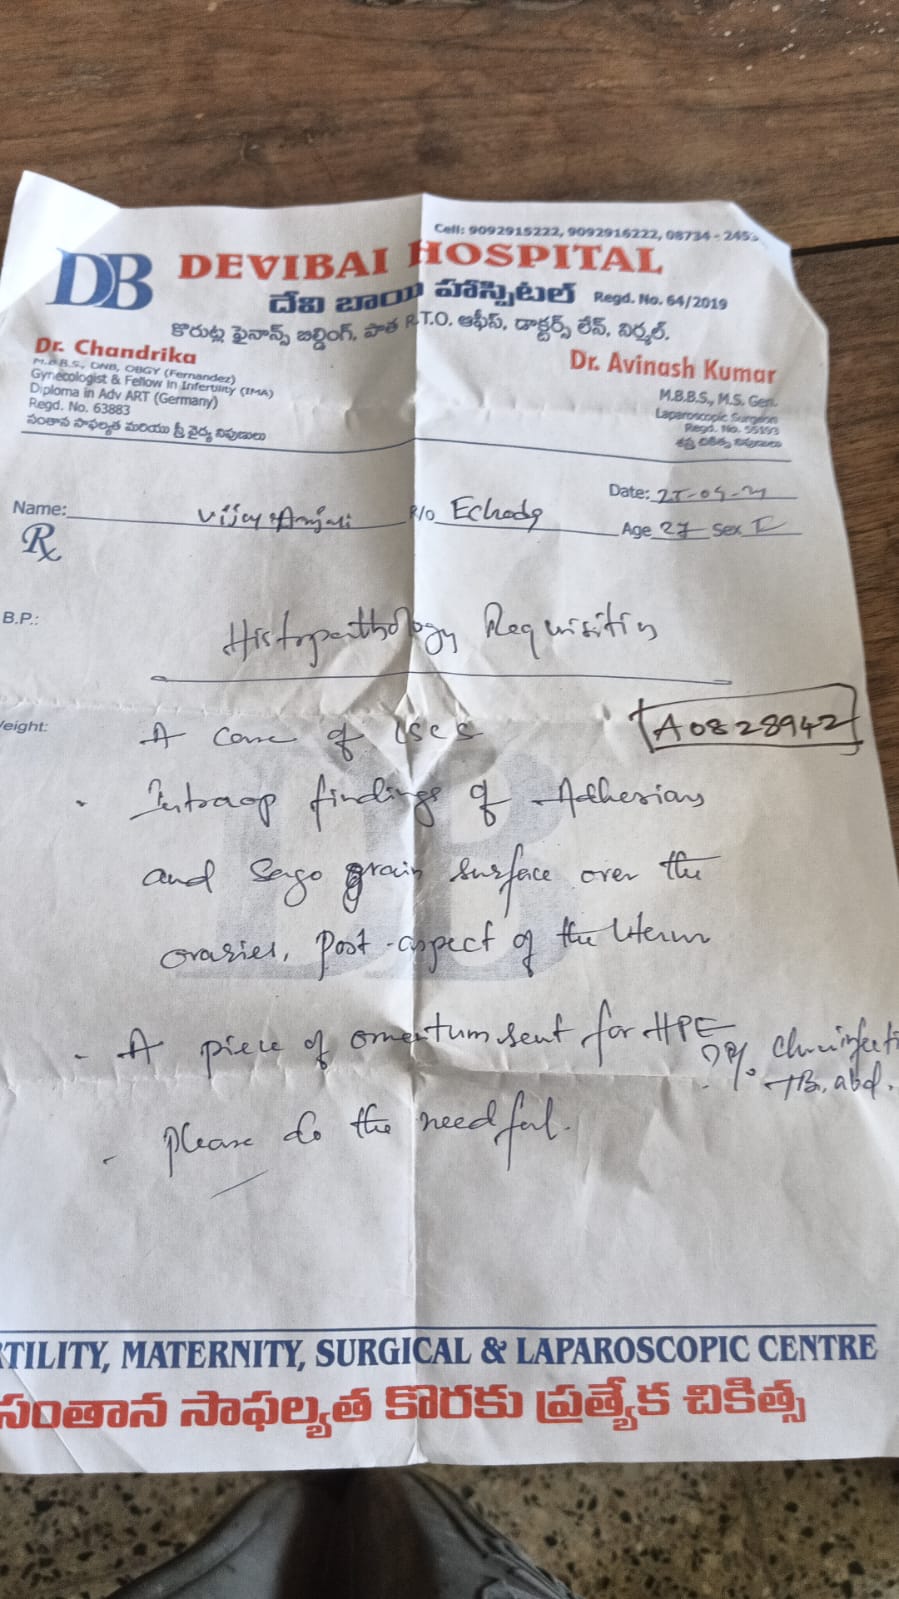 Cell: 9092915222, 9092916222, 08734 - 245
DB DEVIBAI HOSPITAL
దేవి బాయి హాస్పిటల్ Regd. No. 64/2019
కొరుట్ల ఫైనాన్స్ బిల్డింగ్, పాత R.T.O. ఆఫీస్, డాక్టర్స్ లేన్, నిర్మల్.
Dr. Chandrika
M.B.B.S., DNB, OBGY (Fernandez)
Gynecologist & Fellow in Infertility (IMA)
Diploma in Adv ART (Germany)
Regd. No. 63883
సంతాన సాఫల్యత మరియు స్త్రీ వైద్య నిపుణులు
Dr. Avinash Kumar
M.B.B.S., M.S. Gen.
Laparoscopic Surgeon
Regd. No. 55193
శస్త్ర చికిత్స నిపుణులు
Date:
Name: Vijay Anjali R/o Echoda
Age 27 Sex F
Rx
B.P.:
Histopathology Requisition
A0828942
Weight:
A Case of LSCS
Intraop findings of Adhesions
and Sago grain surface over the
ovaries, post aspect of the Uterus
- A piece of omentum sent for HPE
TB. abd.
- please do the needful.
TILITY, MATERNITY, SURGICAL & LAPAROSCOPIC CENTRE
సంతాన సాఫల్యత కొరకు ప్రత్యేక చికిత్స